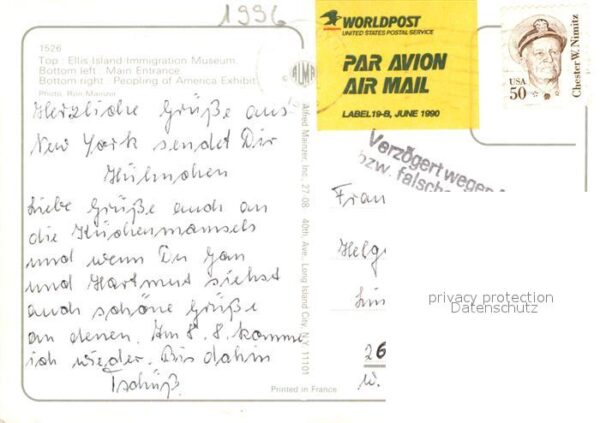 1996
1526
Top : Ellis Island Immigration Museum.
Bottom left : Main Entrance.
Bottom right : Peopling of America Exhibit.
Photo: Ron Mainzer
Herzliche Grüße aus
New York sendet Dir
Hülmchen
Liebe Grüße auch an
die Küchenmamsels
und wenn Du Jan
und Hartmut siehst
auch schöne Grüße
an denen. Am 8. 8. komme
ich wieder. Bis dahin
Tschüß.
Alfred Mainzer, Inc., 27-08 40th Ave., Long Island City, N.Y. 11101
Printed in France
WORLDPOST
UNITED STATES POSTAL SERVICE
PAR AVION
AIR MAIL
LABEL 19-B, JUNE 1990
USA
50
Chester W. Nimitz
Verzögert wegen
bzw. falsche
Frau
Helg
26
w.
privacy protection
Datenschutz